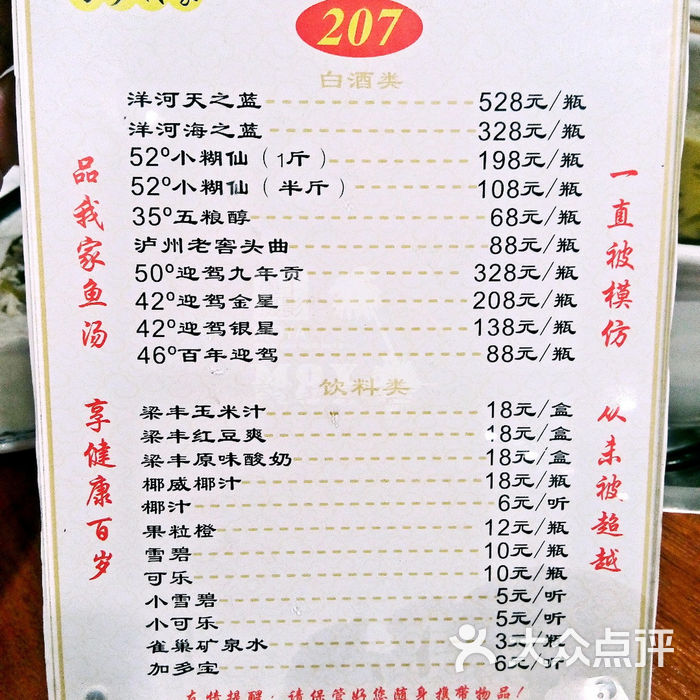 207
白酒类
洋河天之蓝 528元/瓶
洋河海之蓝 328元/瓶
52°小糊仙（1斤） 198元/瓶
52°小糊仙（半斤） 108元/瓶
35°五粮醇 68元/瓶
泸州老窖头曲 88元/瓶
50°迎驾九年贡 328元/瓶
42°迎驾金星 208元/瓶
42°迎驾银星 138元/瓶
46°百年迎驾 88元/瓶
饮料类
梁丰玉米汁 18元/盒
梁丰红豆爽 18元/盒
梁丰原味酸奶 18元/盒
椰威椰汁 18元/瓶
椰汁 6元/听
果粒橙 12元/瓶
雪碧 10元/瓶
可乐 10元/瓶
小雪碧 5元/听
小可乐 5元/听
雀巢矿泉水 3元/瓶
加多宝 6元/听
品我家鱼汤
享健康百岁
一直被模仿
从未被超越
友情提醒：请保管好您随身携带物品！
大众点评